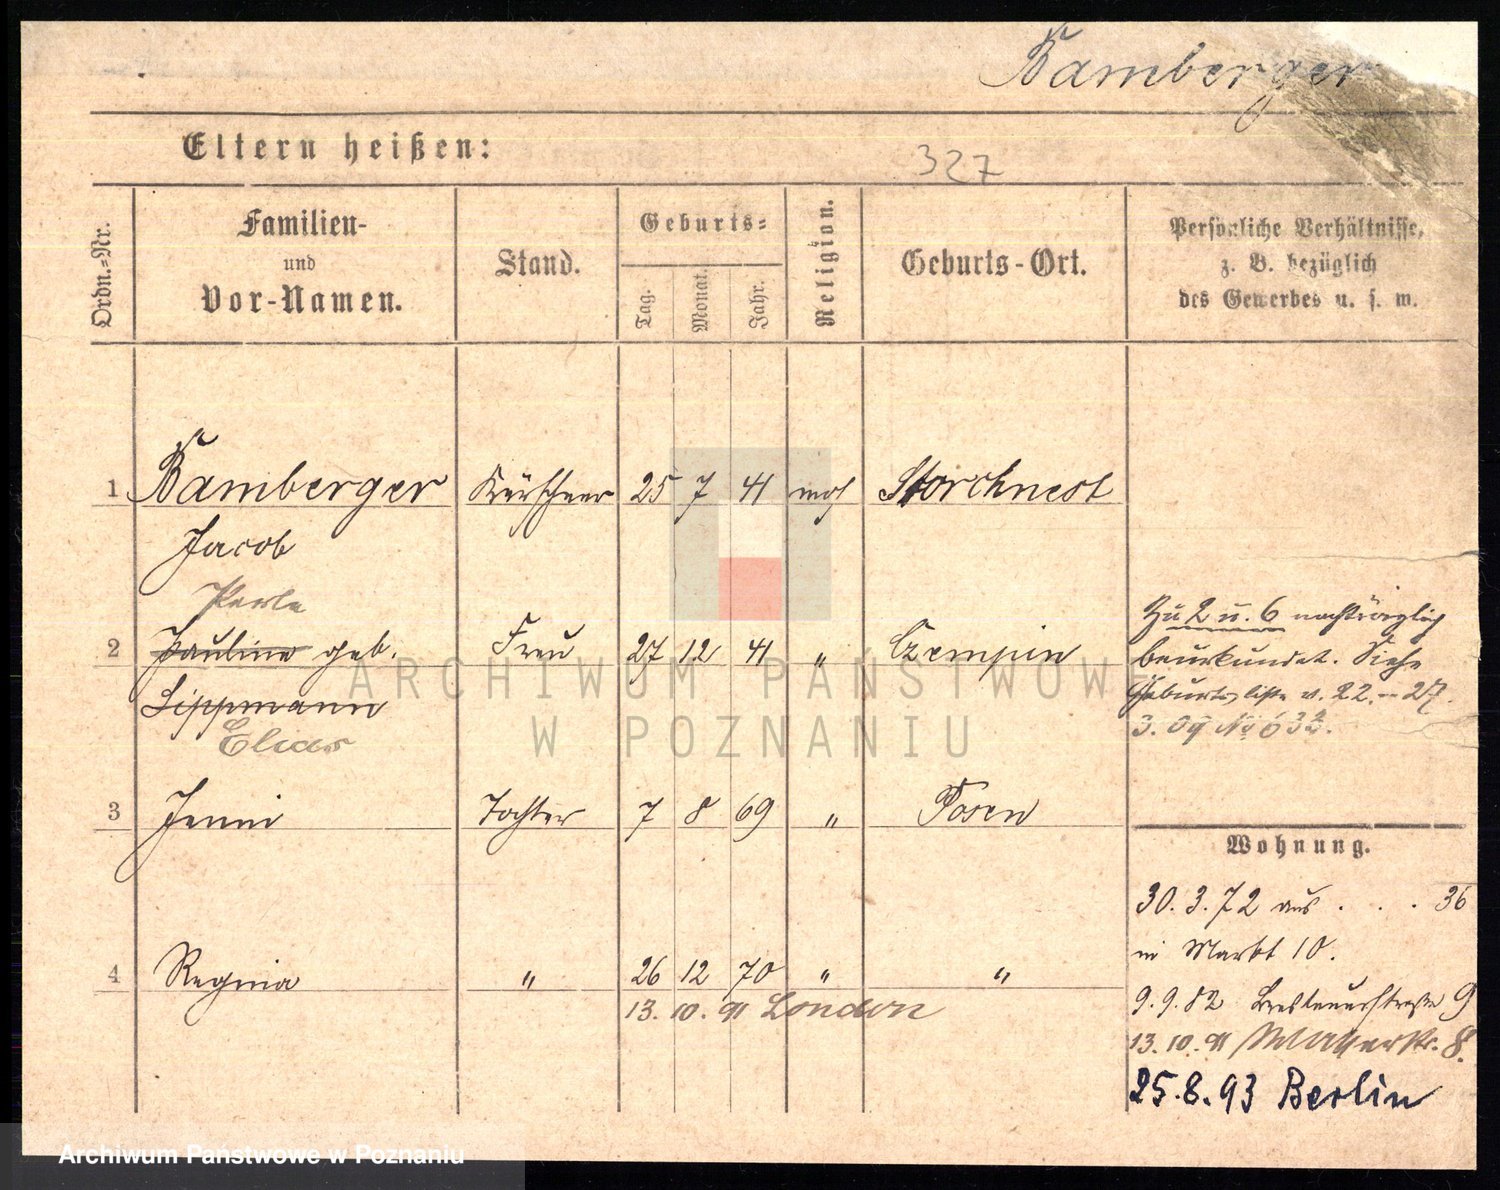 Bamberger
Eltern heißen:
327
Ordn.-Nr.
Familien-
und
Vor-Namen.
Stand.
Geburts-
Tag.
Monat.
Jahr.
Religion.
Geburts-Ort.
Persönliche Verhältnisse,
z. B. bezüglich
des Gewerbes u. s. w.
1 Bamberger Kürschner 25 7 41 mos Storchnest
Jacob
Perle
2 Pauline geb. Frau 27 12 41 " Czempin
Lippmann
Elias
Zu 2 u. 6 nachträglich
beurkundet. Siehe
Geburtsliste v. 22. - 27.
3. 09 No 632.
3 Jenni Tochter 7 8 69 " Posen
Wohnung.
30. 3. 72 aus . . . 36
in Markt 10.
4 Regina " 26 12 70 " "
13. 10. 91 London
9. 9. 82 Breslauerstraße 9
13. 10. 91 8.
25. 8. 93 Berlin
ARCHIWUM PAŃSTWOWE
W POZNANIU
Archiwum Państwowe w Poznaniu